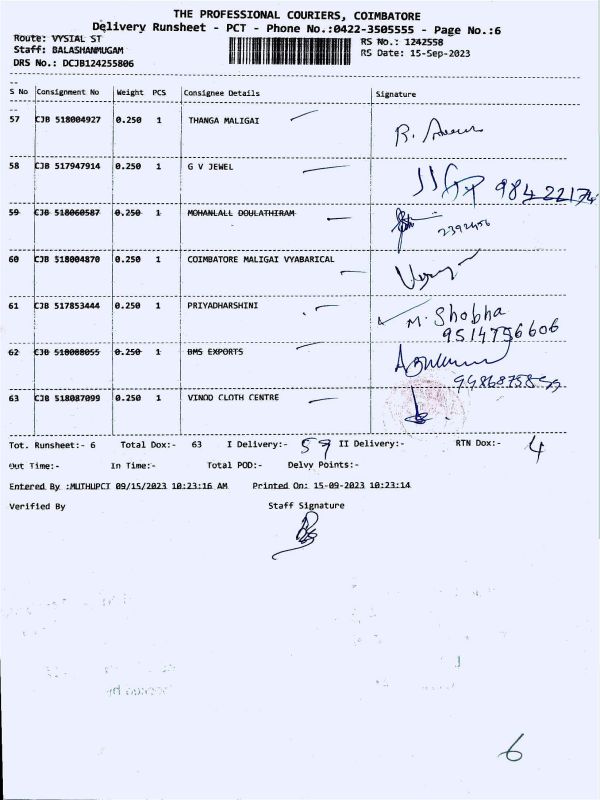 THE PROFESSIONAL COURIERS, COIMBATORE
Delivery Runsheet - PCT - Phone No.:0422-3505555 - Page No.:6
Route: VYSIAL ST RS No.: 1242558
Staff: BALASHANMUGAM RS Date: 15-Sep-2023
DRS No.: DCJB124255806
S No Consignment No Weight PCS Consignee Details Signature
57 CJB 518004927 0.250 1 THANGA MALIGAI
58 CJB 517947914 0.250 1 G V JEWEL
59 CJB 518060587 0.250 1 MOHANLALL DOULATHIRAM 2392456
60 CJB 518004870 0.250 1 COIMBATORE MALIGAI VYABARICAL
61 CJB 517853444 0.250 1 PRIYADHARSHINI M. Shobha
9514756606
62 CJB 518088055 0.250 1 BMS EXPORTS
63 CJB 518087099 0.250 1 VINOD CLOTH CENTRE
Tot. Runsheet:- 6 Total Dox:- 63 I Delivery:- 59 II Delivery:- RTN Dox:- 4
Out Time:- In Time:- Total POD:- Delvy Points:-
Entered By :MUTHUPCT 09/15/2023 10:23:16 AM Printed On: 15-09-2023 10:23:14
Verified By Staff Signature
6